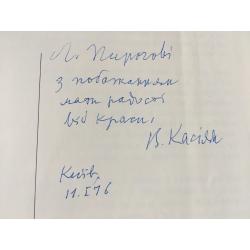 Л. Пирогові
з побажанням
мати радості
від краси,
В. Касіян
Київ
11.I 76